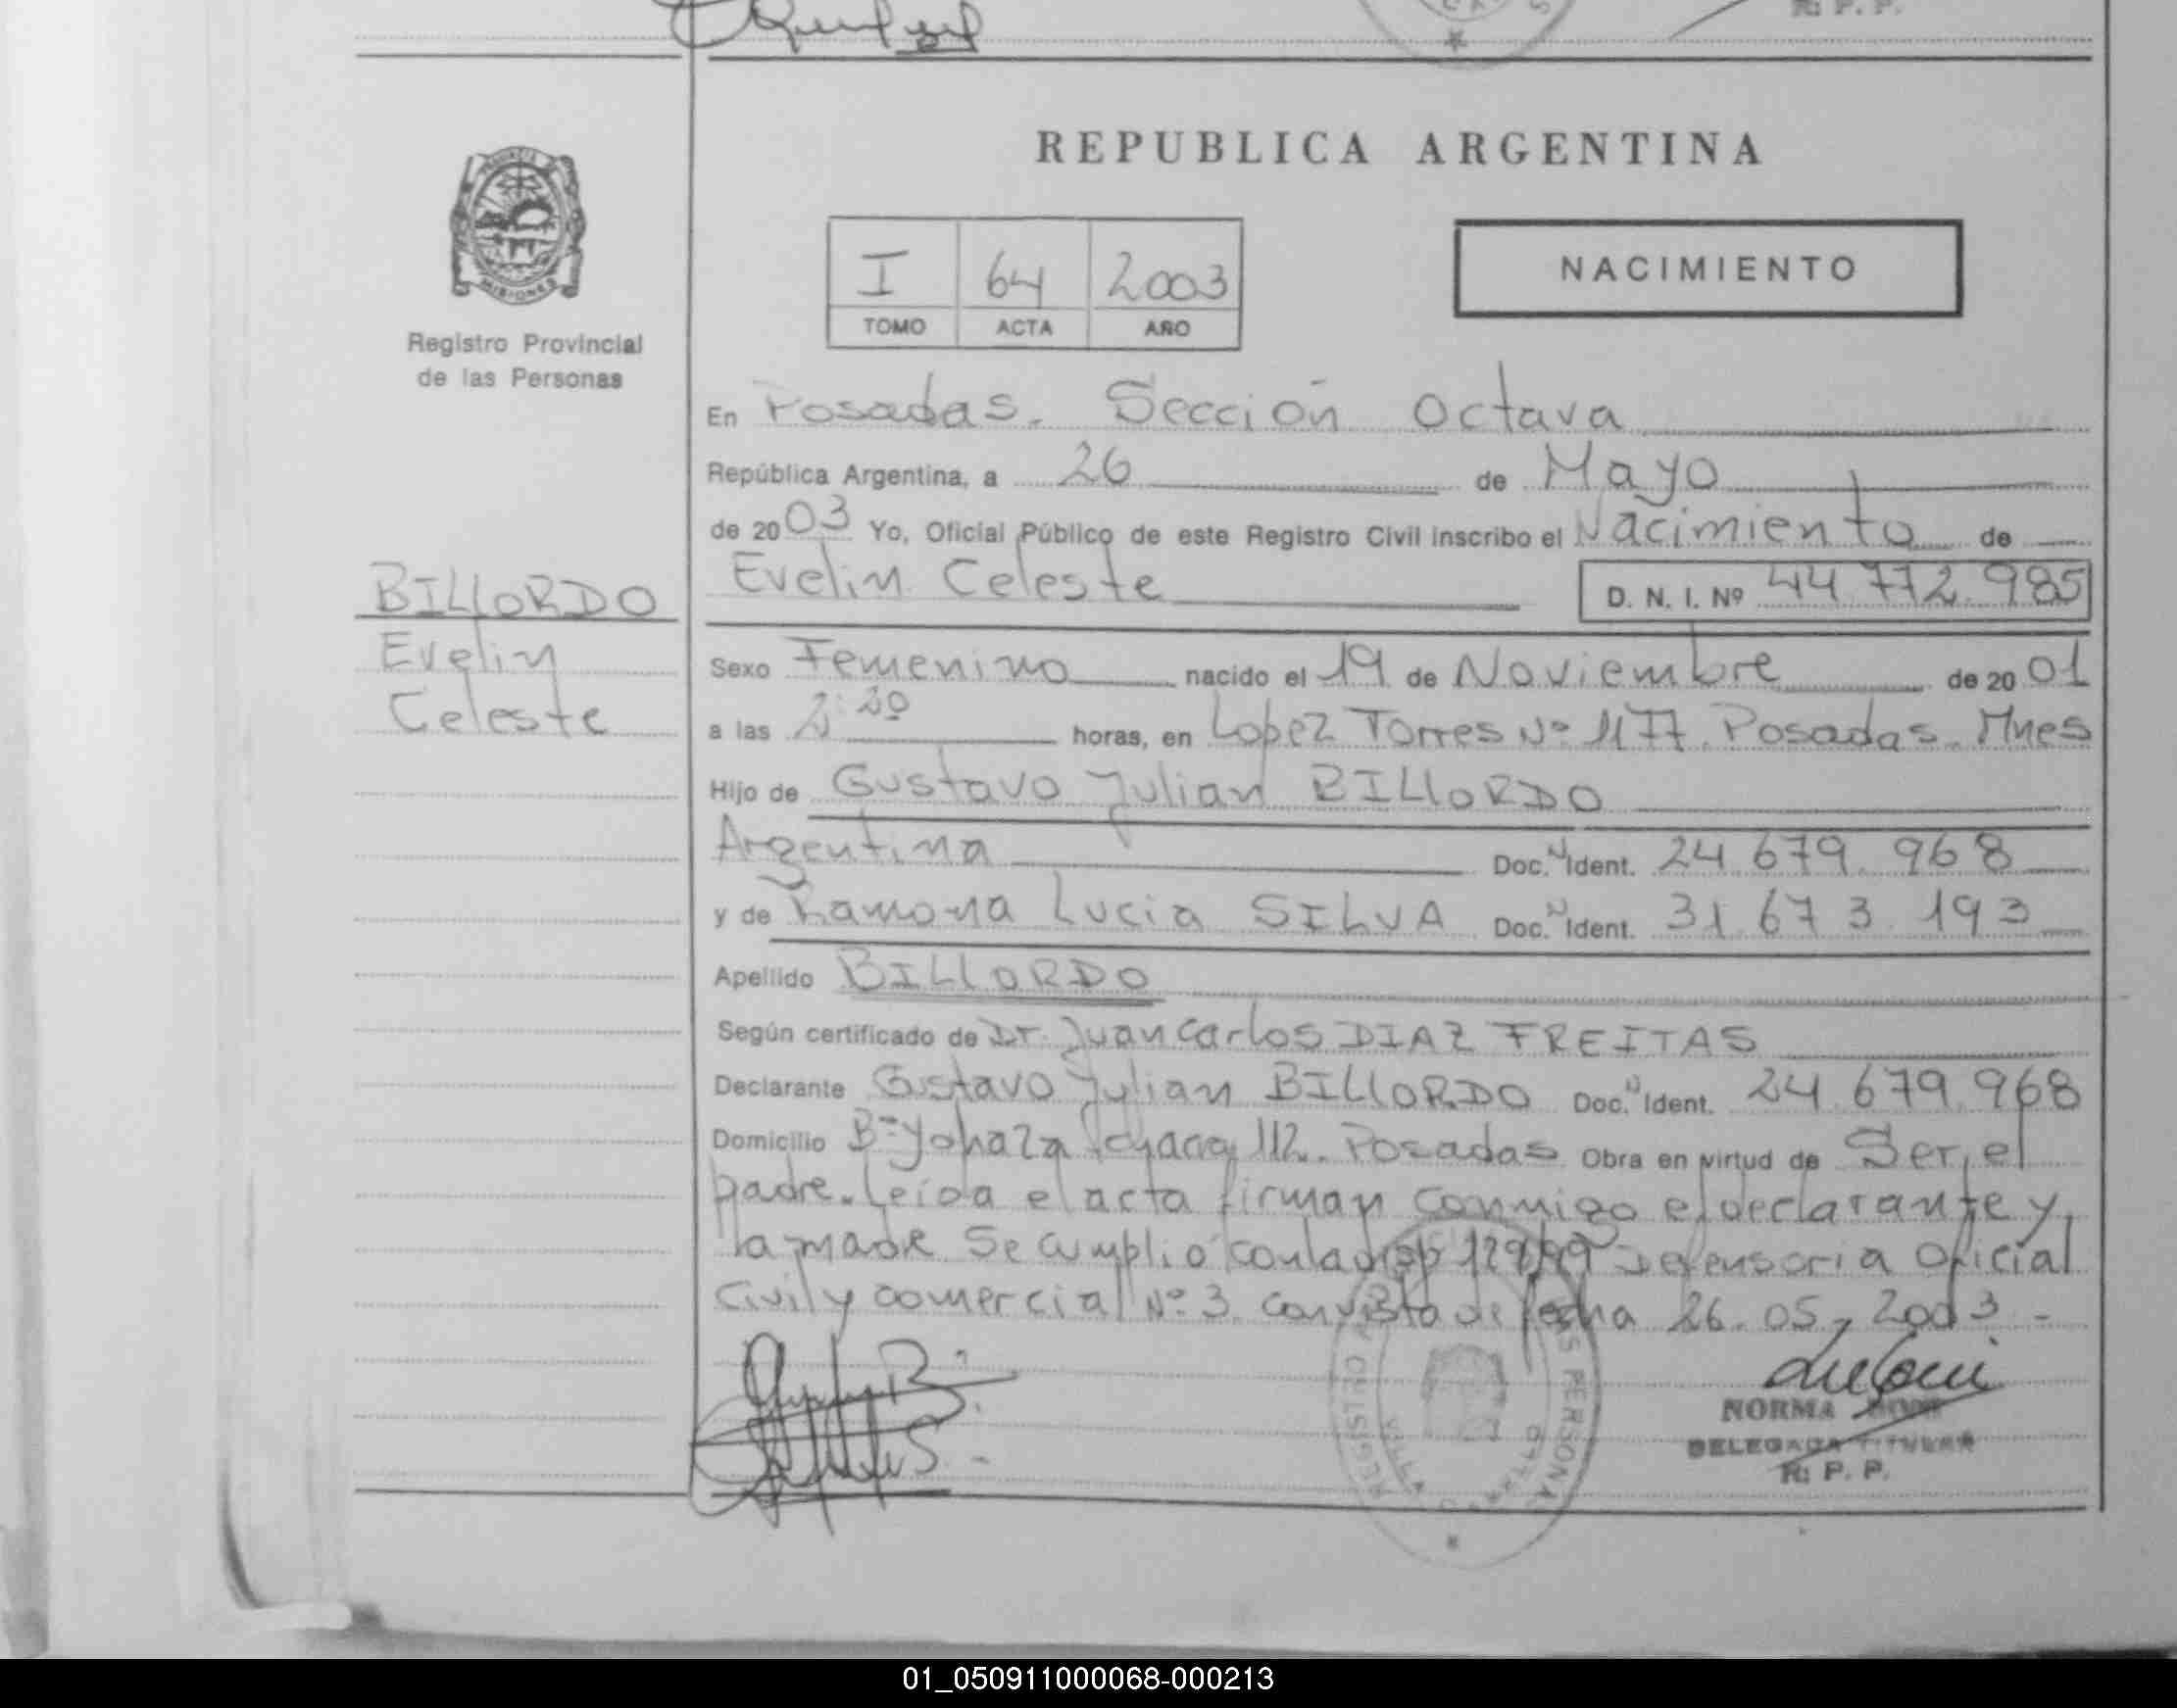 R. P. P.
REPUBLICA ARGENTINA
MISIONES
Registro Provincial
de las Personas
I 64 2003
TOMO ACTA AÑO
NACIMIENTO
En Posadas. Sección Octava
República Argentina, a 26 de Mayo
de 2003 Yo, Oficial Público de este Registro Civil inscribo el Nacimiento de
BILLORDO
Evelin
Celeste
Evelin Celeste D. N. I. Nº 44 772 985
Sexo Femenino nacido el 19 de Noviembre de 2001
a las 2:20 horas, en Lopez Torres Nº 1177. Posadas. Mnes
Hijo de Gustavo Julian BILLORDO
Argentina Doc. N Ident. 24.679.968
y de Ramona Lucia SILVA Doc. N Ident. 31.673.193
Apellido BILLORDO
Según certificado de Dr. Juan Carlos DIAZ FREITAS
Declarante Gustavo Julian BILLORDO Doc. N Ident. 24.679.968
Domicilio Bº Yohaza 112. Posadas Obra en virtud de Ser el
padre. Leída el acta firman conmigo el declarante y
la madre Se cumplió con la disp 129/99 Defensoria Oficial
Civil y comercial Nº 3. con vista de fecha 26-05-2003.-
NORMA
DELEGADA TITULAR
R. P. P.
01_050911000068-000213